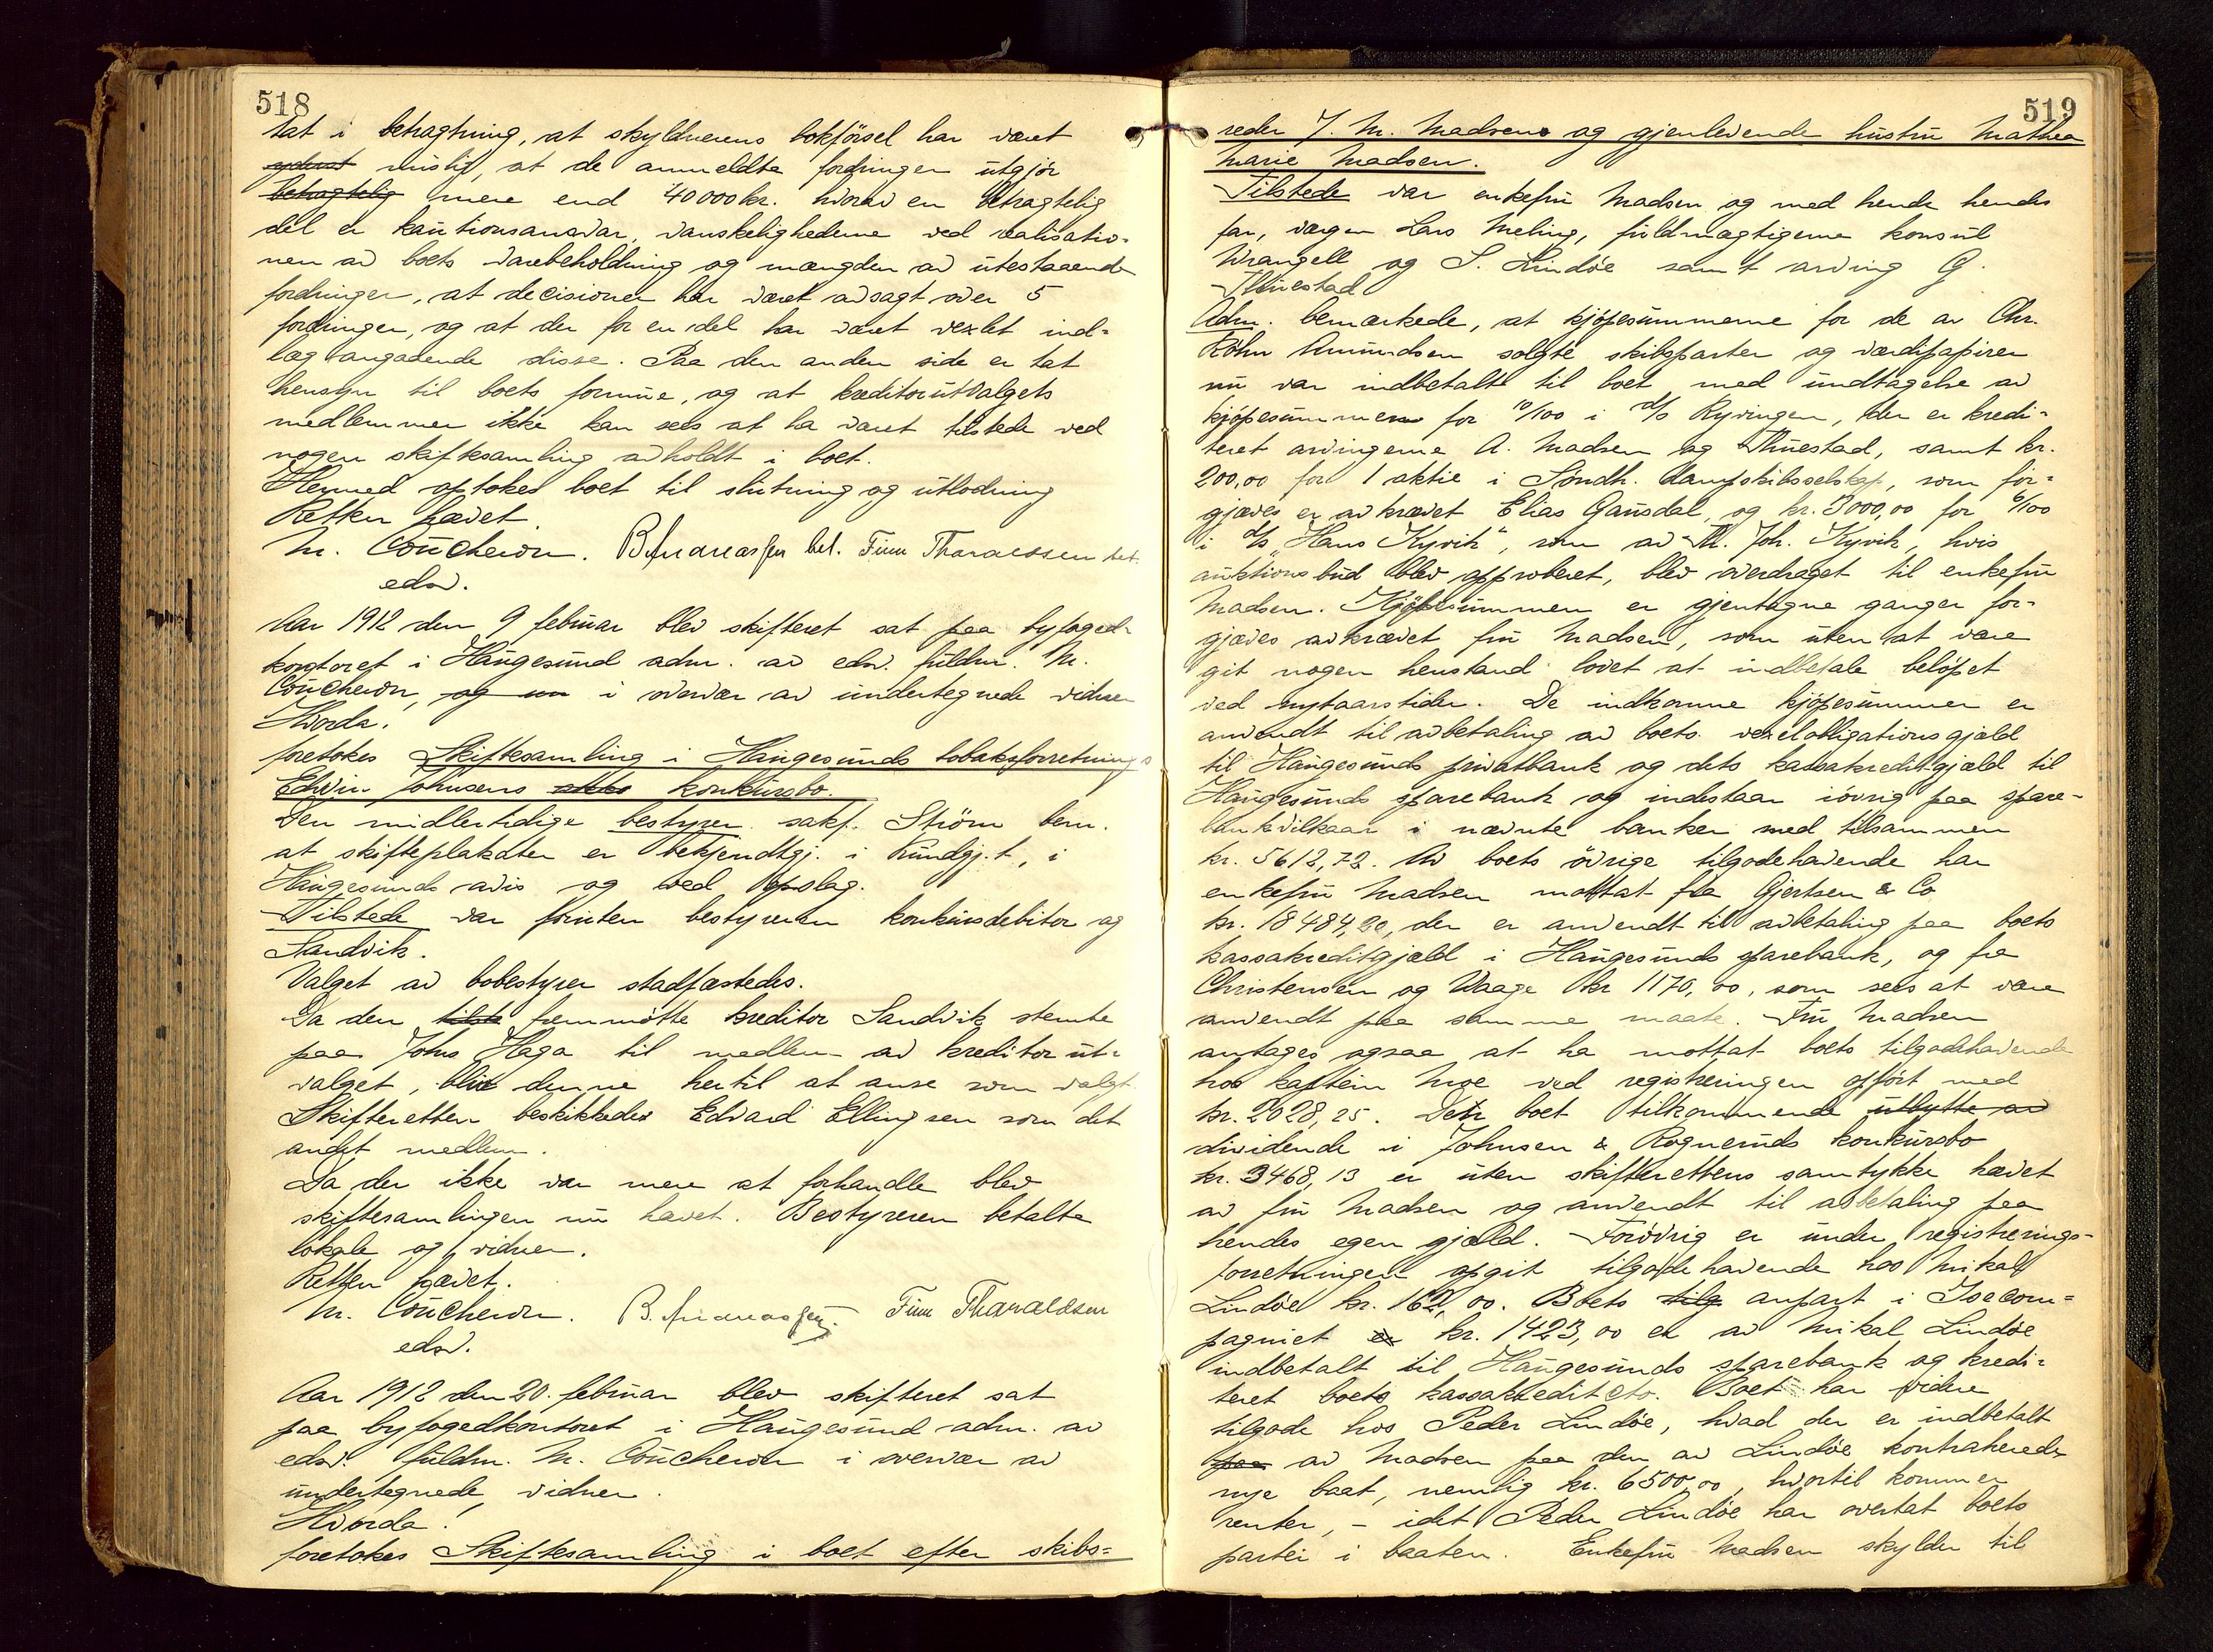 518
tat i betragtning, at skyldnerens bokførsel har været
yderst mislig, at de anmeldte fordringer utgjør
betragtelig mere end 40000 kr. hvorav en betragtelig
del er kautionsansvar, vanskelighederne ved realisatio-
nen av boets varebeholdning og mængden av utestaaende
fordringer, at decisioner har været avsagt over 5
fordringer, og at der for en del har været vexlet ind-
læg angaaende disse. Paa den anden side er tat
hensyn til boets formue, og at kreditorutvalgets
medlemmer ikke kan sees at ha været tilstede ved
nogen skiftesamling avholdt i boet.
Hermed optokes boet til slutning og utlodning
Retten hævet.
M. Coucheron. B. Andreassen bet. Finn Tharaldsen bet.
edsv.
Aar 1912 den 9 februar blev skifteret sat paa byfoged-
kontoret i Haugesund adm. av edsv. fuldm. M.
Coucheron, og i overvær av undertegnede vidner
Hvorda:
foretokes Skiftesamling i Haugesunds tobaksforretning
Edvin Johnsens konkursbo.
Den midlertidige bestyrer sakf. Strøm bem.
at skifteplakaten er bekjendtgj. i Kundgj.t., i
Haugesunds avis og ved opslag.
Tilstede var foruten bestyreren konkursdebitor og
Sandvik.
Valget av bobestyrer stadfæstedes.
Da den fremmøtte kreditor Sandvik stemte
paa Johs Haga til medlem av kreditorut-
valget, blir denne hertil at anse som valgt.
Skifteretten beskikkedes Edvard Ellingsen som det
andet medlem.
Da der ikke var mere at forhandle blev
skiftesamlingen nu hævet. Bestyreren betalte
lokale og vidner.
Retten hævet.
M. Coucheron. B. Andreassen. Finn Tharaldsen
edsv.
Aar 1912 den 20. februar blev skifteret sat
paa byfogedkontoret i Haugesund adm. av
edsv. fuldm. M. Coucheron i overvær av
undertegnede vidner.
Hvorda!
foretokes Skiftesamling i boet efter skibs=
519
reder J. M. Madsen og gjenlevende hustru Mathea
Marie Madsen.
Tilstede var enkefru Madsen og med hende hendes
far, vergen Lars Meling, fuldmægtigerne konsul
Wrangell og S. Lindøe samt arving G.
Thuestad
Adm. bemærkede, at kjøpesummerne for de av Chr.
Røhn Amundsen solgte skibsparter og værdipapirer
nu var indbetalt til boet med undtagelse av
kjøpesummen for 10/100 i d/s Ryvingen, der er kredi-
teret arvingerne A. Madsen og Thuestad, samt kr.
200,00 for 1 aktie i Søndh. dampskibsselskap, som for-
gjæves er avkrævet Elias Gausdal, og kr. 3000,00 for 6/100
i d/s "Hans Kyvik", som av M. Joh. Kyvik, hvis
auktionsbud blev approberet, blev overdraget til enkefru
Madsen. Kjøpesummen er gjentagne ganger for-
gjæves avkrævet fru Madsen, som uten at være
git nogen henstand lovet at indbetale beløpet
ved nytaarstider. De indkomne kjøpesummer er
anvendt til avbetaling av boets vexelobligationsgjæld
til Haugesunds privatbank og dets kassakreditgjæld til
Haugesunds sparebank og indestaar iøvrig paa spare-
bankvilkaar i nævnte banker med tilsammen
kr. 5612,72. Av boets øvrige tilgodehavende har
enkefru Madsen mottat fra Gjertsen & Co
kr. 18484,20, der er anvendt til avbetaling paa boets
kassakreditgjæld i Haugesunds sparebank, og fra
Christensen og Waage kr 1170,00, som sees at være
anvendt paa samme maate. Fru Madsen
antages ogsaa at ha mottat boets tilgodehavende
hos kaptein Moe ved registreringen opført med
kr. 2028,25. Den boet tilkommende utbytte av
dividende i Johnsen & Rogneruds konkursbo
kr. 3468,13 er uten skifterettens samtykke hævet
av fru Madsen og anvendt til avbetaling paa
hendes egen gjæld. Forøvrig er under registrerings-
forretningen opgit tilgodehavende hos Mikal
Lindøe kr. 162,00. Boets tilg anpart i Isecom=
pagniet er kr. 1423,00 er av Mikal Lindøe
indbetalt til Haugesunds sparebank og kredi-
teret boets kassakredit cto. Boet har videre
tilgode hos Peder Lindøe, hvad der er indbetalt
paa av Madsen paa den av Lindøe kontraherede
nye baat, nemlig kr. 6500,00, hvortil kommer
renter, - idet Peder Lindøe har overtat boets
parti i baaten. Enkefru Madsen skylder til